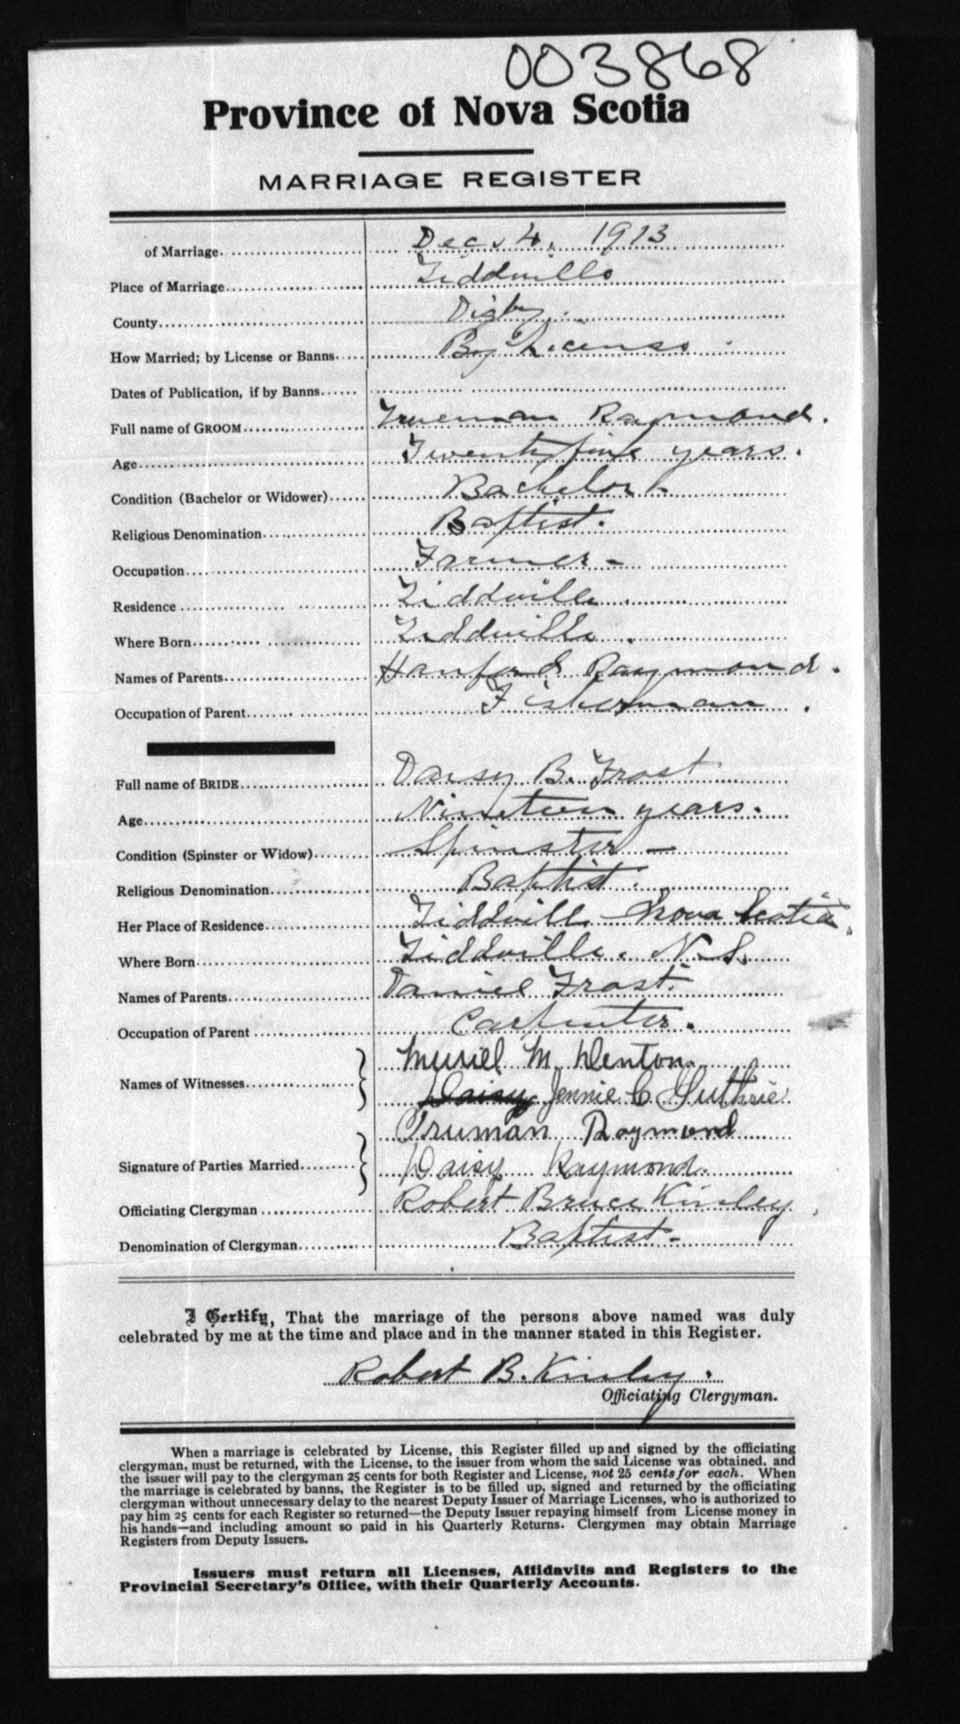 003868
Province of Nova Scotia
MARRIAGE REGISTER
of Marriage. Dec. 4. 1913
Place of Marriage Tiddville
County Digby.
How Married; by License or Banns By License
Dates of Publication, if by Banns
Full name of GROOM Trueman Raymond.
Age Twenty five years.
Condition (Bachelor or Widower) Bachelor -
Religious Denomination Baptist.
Occupation Farmer -
Residence Tiddville.
Where Born Tiddville.
Names of Parents Hanford Raymond.
Occupation of Parent Fisherman.
Full name of BRIDE Daisy B. Frost
Age Nineteen years.
Condition (Spinster or Widow) Spinster -
Religious Denomination Baptist.
Her Place of Residence Tiddville Nova Scotia.
Where Born Tiddville. N. S.
Names of Parents Daniel Frost.
Occupation of Parent Carpenter.
Names of Witnesses Muriel M. Denton.
Daisy Jennie C. Guthrie
Truman Raymond
Signature of Parties Married Daisy Raymond.
Officiating Clergyman Robert Bruce Kinley,
Denomination of Clergyman Baptist -
I Certify, That the marriage of the persons above named was duly
celebrated by me at the time and place and in the manner stated in this Register.
Robert B. Kinley.
Officiating Clergyman.
When a marriage is celebrated by License, this Register filled up and signed by the officiating
clergyman, must be returned, with the License, to the issuer from whom the said License was obtained, and
the issuer will pay to the clergyman 25 cents for both Register and License, not 25 cents for each. When
the marriage is celebrated by banns, the Register is to be filled up, signed and returned by the officiating
clergyman without unnecessary delay to the nearest Deputy Issuer of Marriage Licenses, who is authorized to
pay him 25 cents for each Register so returned—the Deputy Issuer repaying himself from License money in
his hands—and including amount so paid in his Quarterly Returns. Clergymen may obtain Marriage
Registers from Deputy Issuers.
Issuers must return all Licenses, Affidavits and Registers to the
Provincial Secretary's Office, with their Quarterly Accounts.